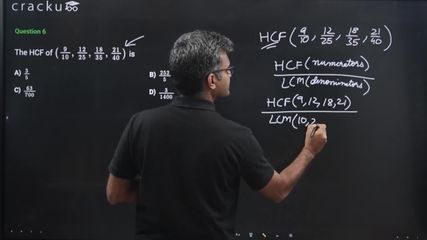 cracku
Question 6
The HCF of (9/10, 12/25, 18/35, 21/40) is
A) 3/5
B) 252/5
C) 63/700
D) 3/1400
HCF (9/10, 12/25, 18/35, 21/40)
HCF (numerators)
LCM (denominators)
HCF (9, 12, 18, 21)
LCM (10, 2